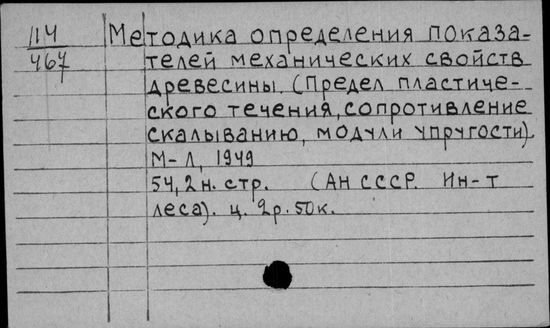 114
467
Методика определения показа-
телей механических свойств
древесины. (Предел пластиче-
ского течения, сопротивление
скалыванию, модули упругости).
М-Л, 1949
54, 2 н. стр. (АН СССР. Ин-т
леса). ц. 2р. 50к.